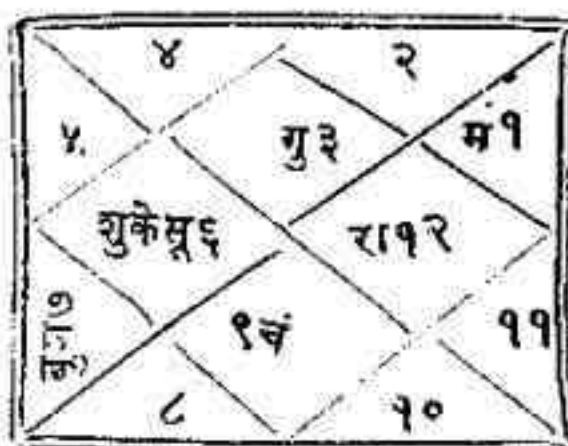 ४ २
५ गु ३ मं १
शुकेसू ६ रा १२
७ ९ चं ११
८ १०